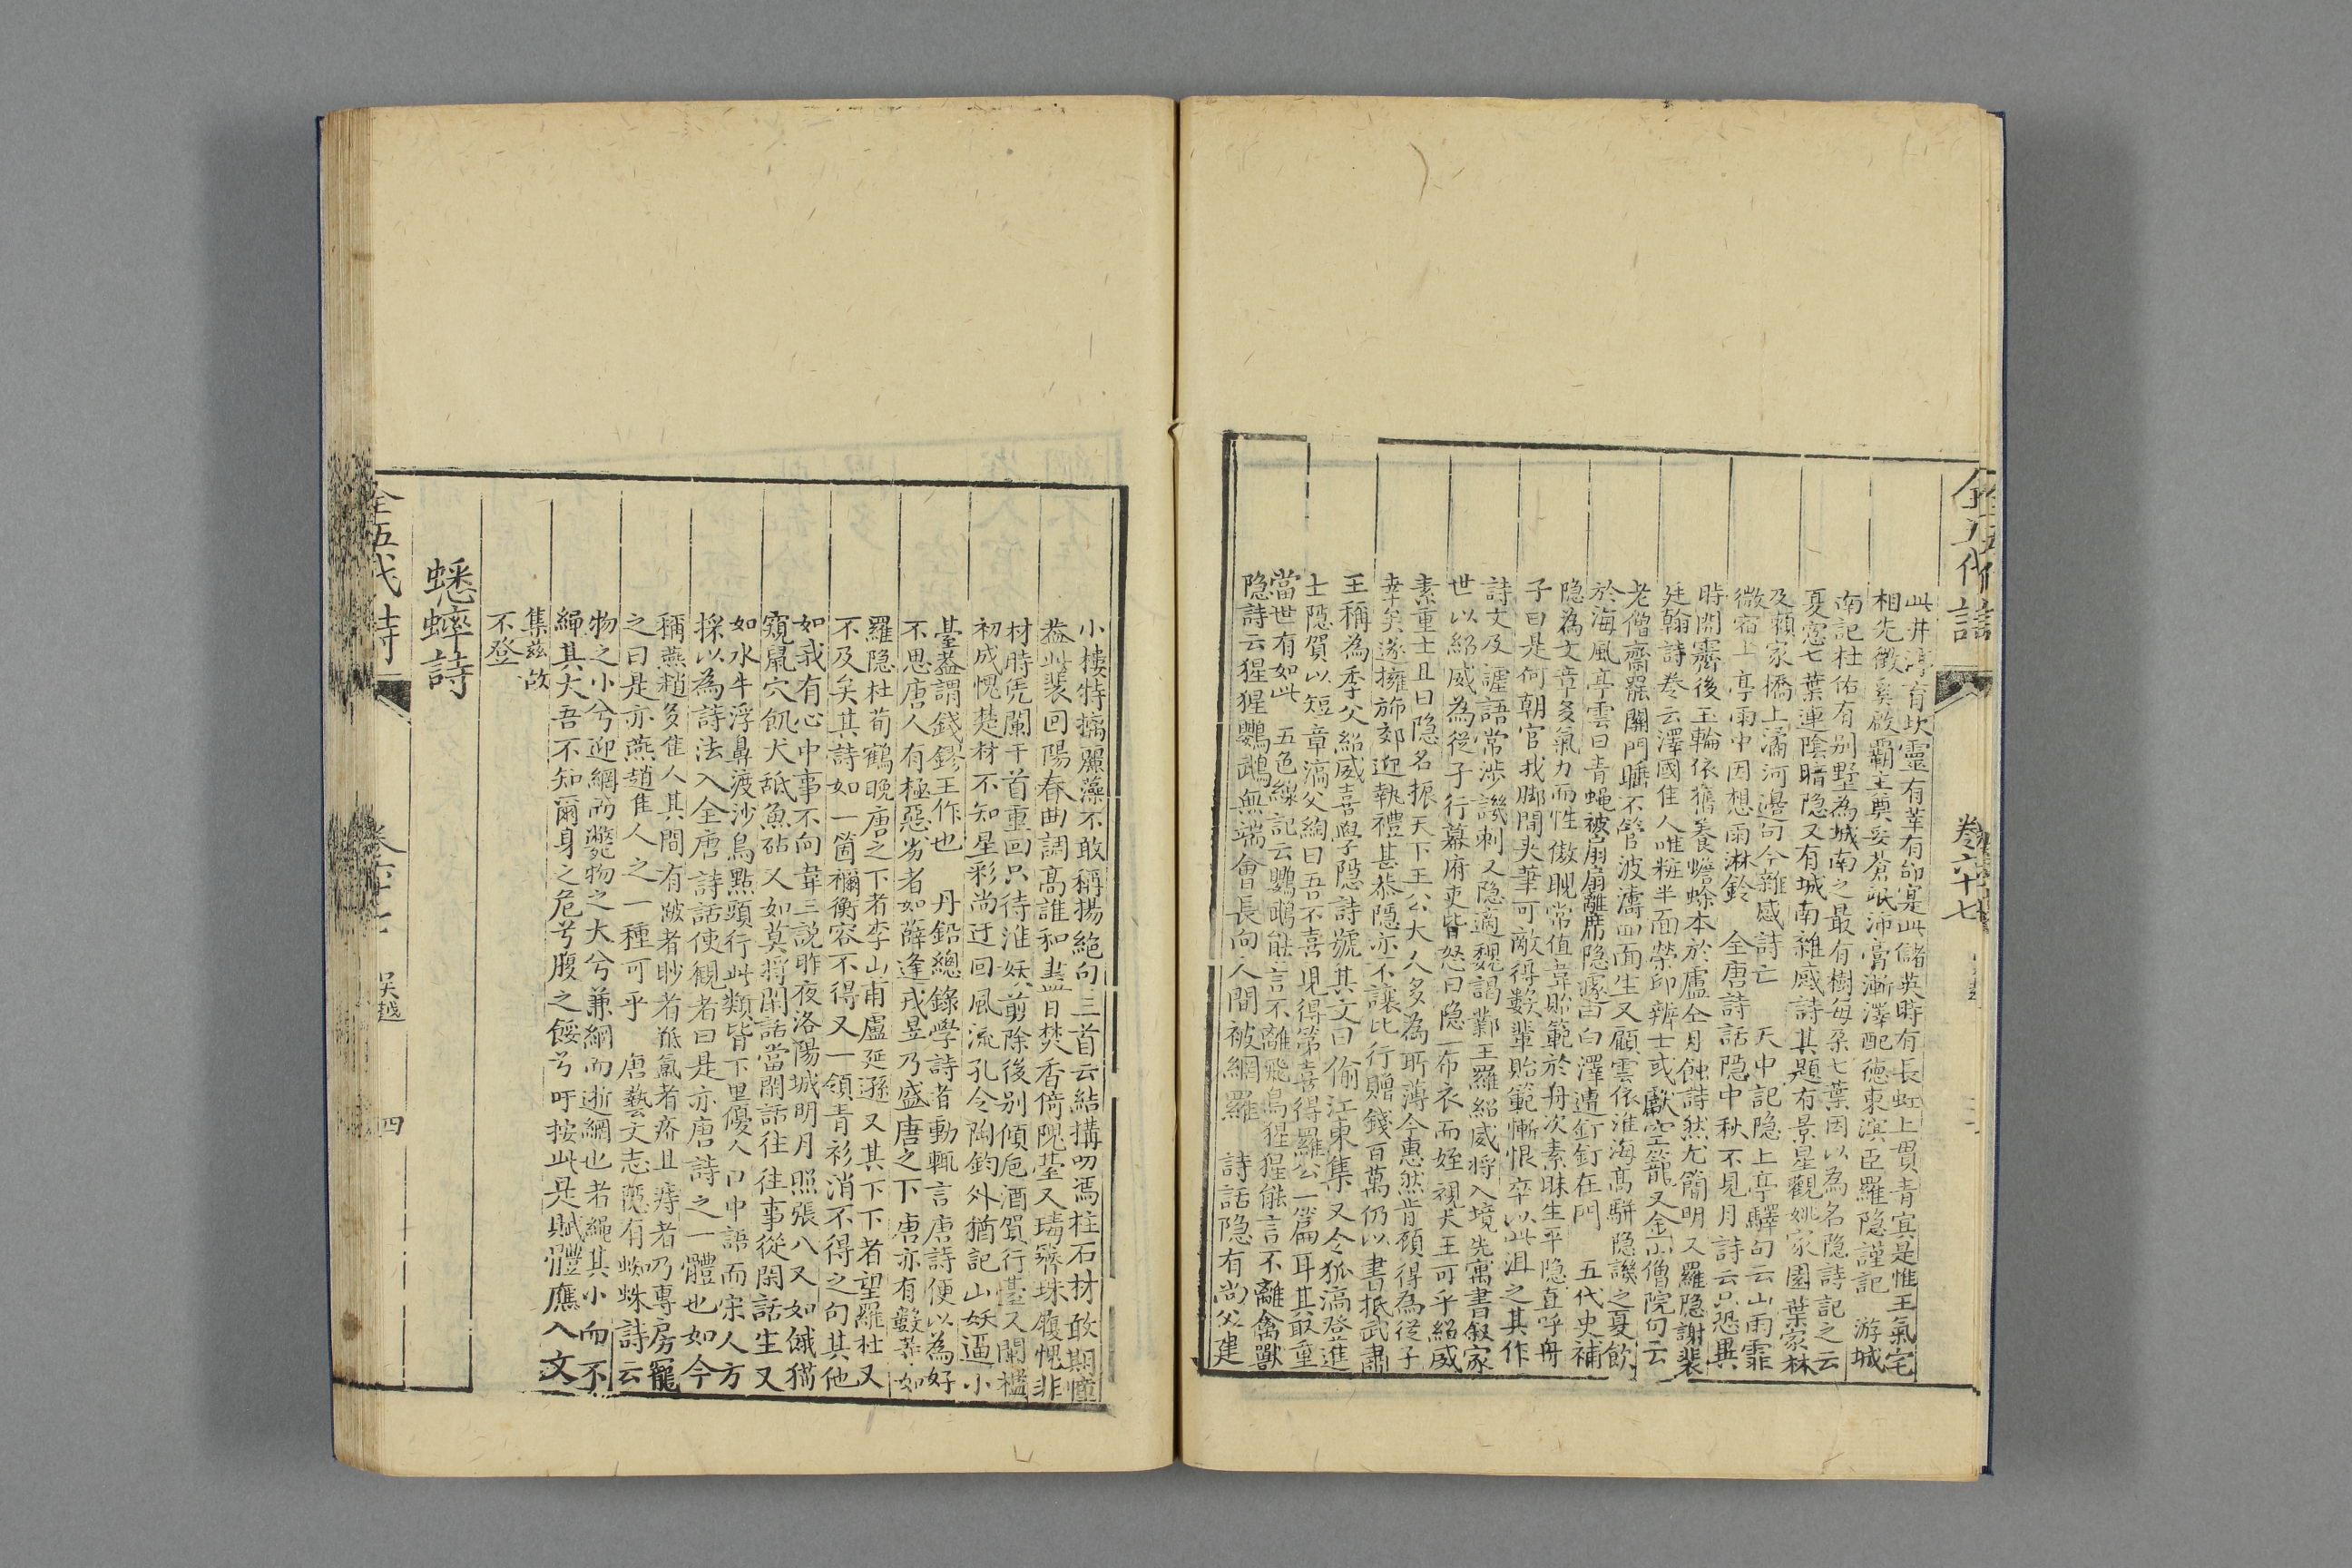 全五代詩
卷六十七
此井渟育坎靈有莘有邰寔此儲英時有長虹上貫青㝠是惟王氣宅
相先徵奚啟霸主奠妥蒼㟭沛膏漸澤配德東濵臣羅隐謹記 游城
南記杜佑有别墅為城南之最有樹每朶七葉因以為名隐詩記之云
夏窓七葉連陰暗隐又有城南雜感詩其題有景星觀姚家園葉家林
及頼家橋上滈河邊句今雜感詩亡 天中記隐上亭驛句云山雨霏
微宿上亭雨中因想雨淋鈴 全唐詩話隐中秋不見月詩云只恐異
時開霽後玉輪依舊養蟾蜍本於盧仝月蝕詩然尤簡明又羅隐謝裴
廷翰詩卷云澤國佳人唯粧半面榮印辨士或獻空籠又金山僧院句云
老僧齋罷關門睡不管波濤四面生又顧雲依淮海高駢隐譏之夏飲
於海風亭雲曰青蠅被扇扇離席隐㨿曰白澤遭釘釘在門 五代史補
隐為文章多氣力而性傲睨常值韋貽範於舟次素昧生平隐直呼舟
子曰是何朝官我脚間夹筆可敵得數輩貽範慚恨卒以此沮之其作
詩文及謔語常涉譏刺又隐適魏謁鄴王羅紹威将入境先寓書叙家
世以紹威為從子行幕府吏皆怒曰隐一布衣而姪視大王可乎紹威
素重士且曰隐名振天下王公大人多為所薄今惠然肯顧得為從子
幸矣遂擁旆郊迎執禮甚恭隐亦不讓比行贈錢百萬仍以書抵武肅
王稱為季父紹威喜學隐詩號其文曰偷江東集又令狐滈登進
士隐賀以短章滈父綯曰吾不喜見得第喜得羅公一篇耳其取重
當世有如此 五色線記云鸚鵡能言不離飛鳥猩猩能言不離禽獸
隐詩云猩猩鸚鵡無端會長向人間被網羅 詩話隐有尚父建
小樓特摛麗藻不敢稱揚絶句三首云結搆叨馮柱石材敢期幢
葢此裴回陽春曲調高誰和盡日焚香倚隗䑓又璹簪珠履愧非
材時凭闌干首重回只待淮妖剪除後别傾巵酒賀行䑓又闌檻
初成愧楚材不知星彩尚迂回風流孔令陶鈞外猶記山妖逼小
䑓葢謂錢鏐王作也 丹鉛總錄學詩者動輒言唐詩便以為好
不思唐人有極惡劣者如薛逢戎昱乃盛唐之下唐亦有數等如
羅隐杜荀鶴晚唐之下者李山甫盧延遜又其下下者望羅杜又
不及矣其詩如一箇禰衡容不得又一領青衫消不得之句其他
如我有心中事不向韋三説昨夜洛陽城明月照張八又如餓猫
窺鼠穴飢犬舐魚砧又如莫将閒話當閒話往往事從閑話生又
如水牛浮鼻渡沙鳥點頭行此類皆下里優人口中語而宋人方
採以為詩法入全唐詩話使觀者曰是亦唐詩之一體也如今
稱燕趙多佳人其間有跛者眇者羝氲者疥且痔者乃專房寵
之曰是亦燕趙佳人之一種可乎 唐藝文志隱有蜘蛛詩云
物之小兮迎網而斃物之大兮兼網而逝網也者繩其小而不
繩其大吾不知爾身之危兮腹之餒兮吁按此是賦體應入文
集兹故
不登
蟋蟀詩
全五代詩
卷六十七
吳越
四